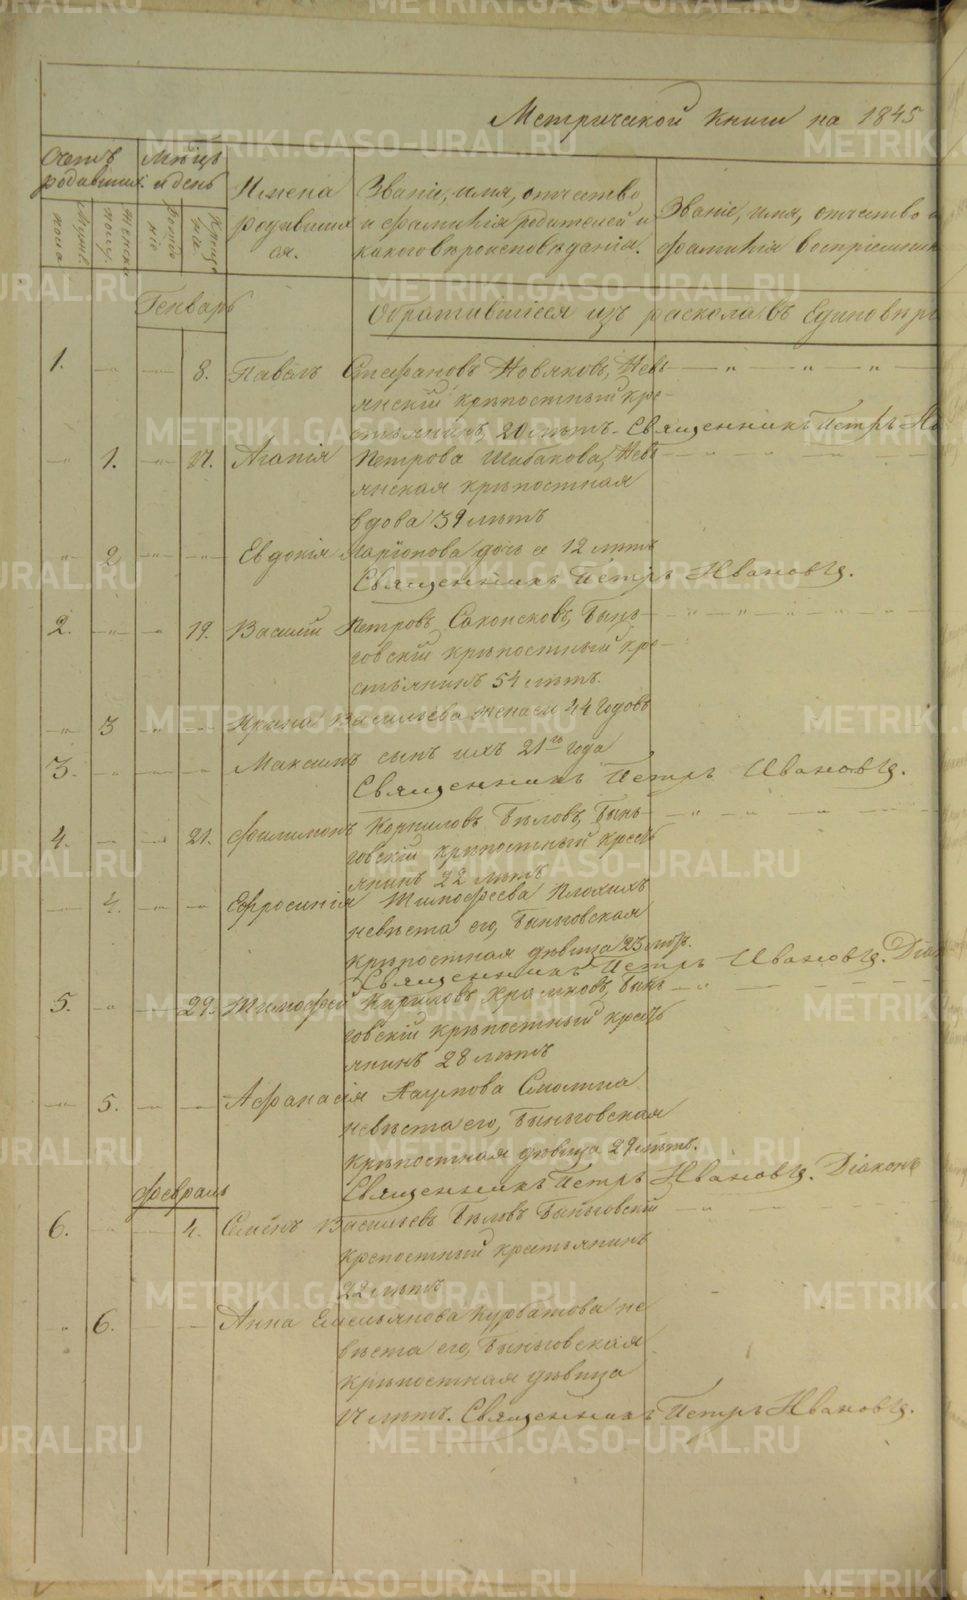 Метрической книги на 1845
Счетъ родившихся
Мѣсяцъ и день
Имена родившихся.
Званіе, имя, отчество и фамилія родителей и какого вѣроисповѣданія.
Званіе, имя, отчество и фамилія воспріемник
мужеска женска
рожденія крещенія
Генварь
Обратившіеся изъ раскола въ Единовѣр
1. 8. Павелъ Стефановъ Новяковъ, Невь-
янскій крѣпостный кре-
стьянинъ, 20 лѣтъ. Священникъ Петръ Ив
1. 17. Агапія Петрова Шибакова, Невь-
янская крѣпостная
вдова 39 лѣтъ
2 Евдокія Ларіонова дочь ее 12 лѣтъ
Священникъ Петръ Ивановъ.
2. 19. Василій Петровъ Сахонсковъ, Бынь-
говскій крѣпостный кре-
стьянинъ 54 лѣтъ.
3 Ирина Васильева жена его 44 годовъ
3. Максимъ сынъ ихъ 21го года
Священникъ Петръ Ивановъ.
4. 21. Филимонъ Корниловъ Бѣловъ, Бынь-
говскій крѣпостный кресть-
янинъ 22 лѣтъ
4. Ефросинія Тимофеева Плохихъ
невѣста его, Быньговская
крѣпостная дѣвица 23 лѣтъ.
Священникъ Петръ Ивановъ. Діак
5. 29. Тимофей Кириловъ Храмковъ, Бынь-
говскій крѣпостный кресть-
янинъ 28 лѣтъ
5. Афанасія Наумова Смотина
невѣста его, Быньговская
крѣпостная дѣвица 29 лѣтъ.
Священникъ Петръ Ивановъ. Діаконъ
Февраль
6. 4. Семенъ Васильевъ Бѣловъ Быньговскій
крепостный крестьянинъ
22 лѣтъ
6. Анна Емельянова Курбатова не-
вѣста его, Быньговская
крѣпостная дѣвица
17 лѣтъ. Священникъ Петръ Ивановъ.
METRIKI.GASO-URAL.RU